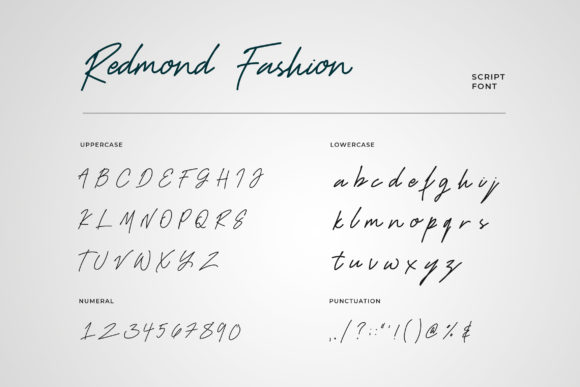 Redmond Fashion
SCRIPT
FONT
UPPERCASE
A B C D E F G H I J
K L M N O P Q R S
T U V W X Y Z
LOWERCASE
a b c d e f g h i j
k l m n o p q r s
t u v w x y z
NUMERAL
1 2 3 4 5 6 7 8 9 0
PUNCTUATION
, . / ? : ; " ' ! ( ) @ % &